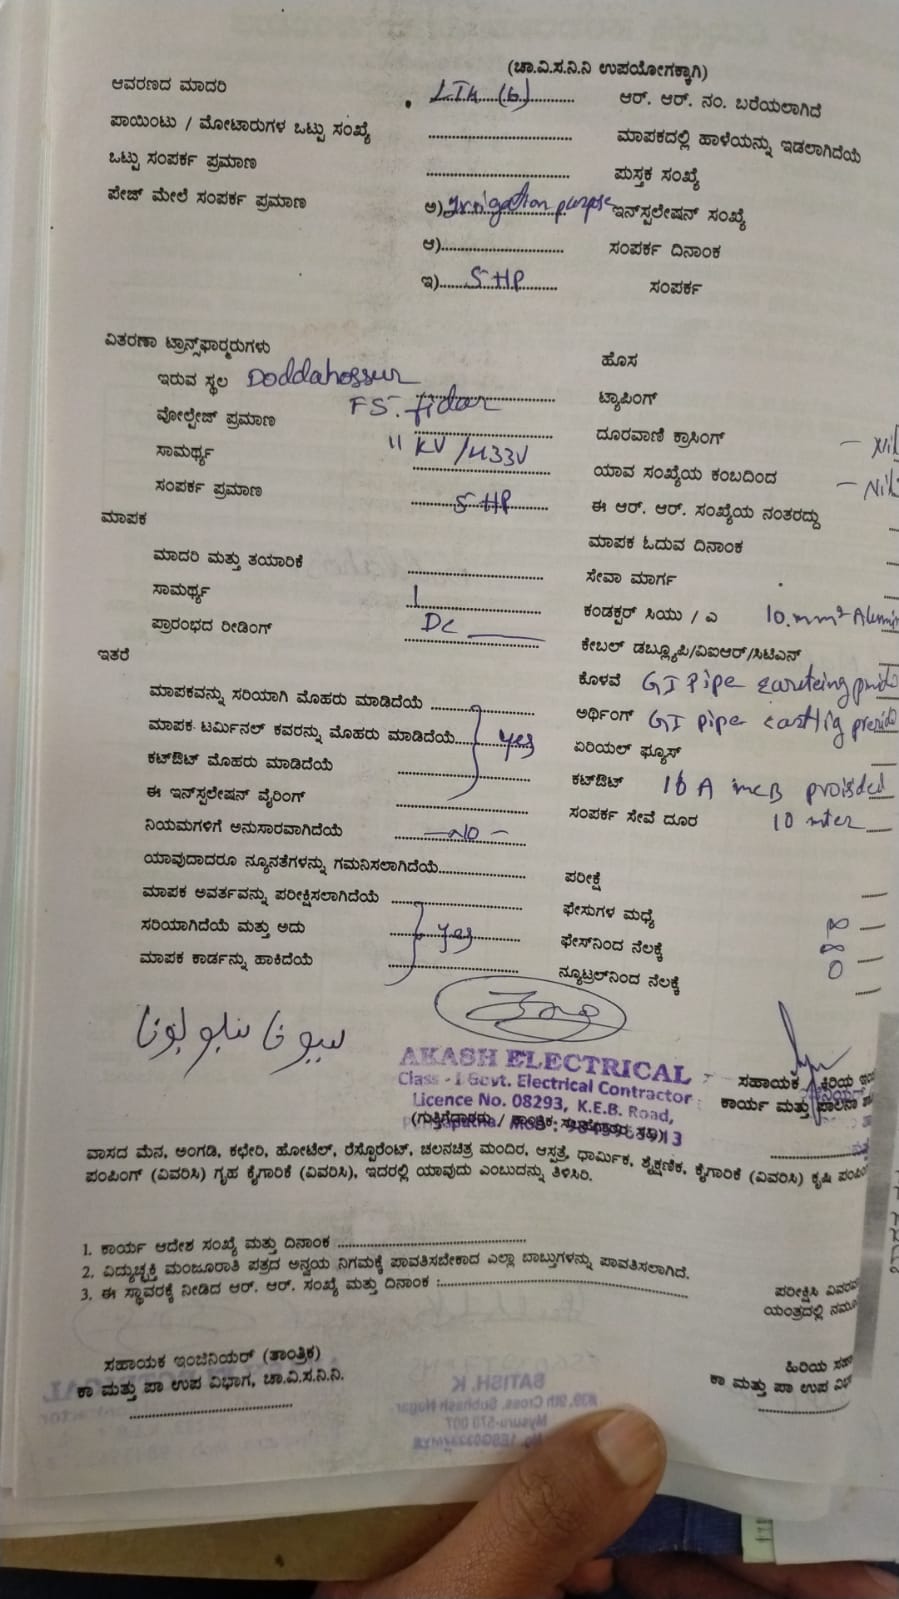 (ಚಾ.ವಿ.ಸ.ನಿ.ನಿ ಉಪಯೋಗಕ್ಕಾಗಿ)
ಆವರಣದ ಮಾದರಿ LT4 (b) ಆರ್. ಆರ್. ನಂ. ಬರೆಯಲಾಗಿದೆ
ಪಾಯಿಂಟು / ಮೋಟಾರುಗಳ ಒಟ್ಟು ಸಂಖ್ಯೆ ಮಾಪಕದಲ್ಲಿ ಹಾಳೆಯನ್ನು ಇಡಲಾಗಿದೆಯೆ
ಒಟ್ಟು ಸಂಪರ್ಕ ಪ್ರಮಾಣ ಪುಸ್ತಕ ಸಂಖ್ಯೆ
ಪೇಜ್ ಮೇಲೆ ಸಂಪರ್ಕ ಪ್ರಮಾಣ ಅ) Irrigation purpose ಇನ್‌ಸ್ಟಲೇಷನ್ ಸಂಖ್ಯೆ
ಆ) ಸಂಪರ್ಕ ದಿನಾಂಕ
ಇ) 5 HP ಸಂಪರ್ಕ
ವಿತರಣಾ ಟ್ರಾನ್ಸ್‌ಫಾರ್ಮರುಗಳು ಹೊಸ
ಇರುವ ಸ್ಥಳ Doddahossur ಟ್ಯಾಪಿಂಗ್
ವೋಲ್ಟೇಜ್ ಪ್ರಮಾಣ F5. fidar ದೂರವಾಣಿ ಕ್ರಾಸಿಂಗ್ - Nil
ಸಾಮರ್ಥ್ಯ 11 KV /433V ಯಾವ ಸಂಖ್ಯೆಯ ಕಂಬದಿಂದ - Nil
ಸಂಪರ್ಕ ಪ್ರಮಾಣ 5 HP ಈ ಆರ್. ಆರ್. ಸಂಖ್ಯೆಯ ನಂತರದ್ದು
ಮಾಪಕ ಮಾಪಕ ಓದುವ ದಿನಾಂಕ
ಮಾದರಿ ಮತ್ತು ತಯಾರಿಕೆ ಸೇವಾ ಮಾರ್ಗ
ಸಾಮರ್ಥ್ಯ ಕಂಡಕ್ಟರ್ ಸಿಯು / ಎ 10.mm²
ಪ್ರಾರಂಭದ ರೀಡಿಂಗ್ DC ಕೇಬಲ್ ಡಬ್ಲ್ಯೂಪಿ/ವಿಐಆರ್/ಸಿಟಿಎಸ್
ಇತರೆ ಕೊಳವೆ GI Pipe
ಮಾಪಕವನ್ನು ಸರಿಯಾಗಿ ಮೊಹರು ಮಾಡಿದೆಯೆ ಅರ್ಥಿಂಗ್ GI pipe
ಮಾಪಕ ಟರ್ಮಿನಲ್ ಕವರನ್ನು ಮೊಹರು ಮಾಡಿದೆಯೆ yes ಏರಿಯಲ್ ಫ್ಯೂಸ್
ಕಟ್‌ಔಟ್ ಮೊಹರು ಮಾಡಿದೆಯೆ ಕಟ್‌ಔಟ್ 16 A mcB proided
ಈ ಇನ್‌ಸ್ಟಲೇಷನ್ ವೈರಿಂಗ್ ಸಂಪರ್ಕ ಸೇವೆ ದೂರ 10 mter
ನಿಯಮಗಳಿಗೆ ಅನುಸಾರವಾಗಿದೆಯೆ - NO -
ಯಾವುದಾದರೂ ನ್ಯೂನತೆಗಳನ್ನು ಗಮನಿಸಲಾಗಿದೆಯೆ ಪರೀಕ್ಷೆ
ಮಾಪಕ ಅವರ್ತವನ್ನು ಪರೀಕ್ಷಿಸಲಾಗಿದೆಯೆ ಫೇಸುಗಳ ಮಧ್ಯೆ ∞
ಸರಿಯಾಗಿದೆಯೆ ಮತ್ತು ಅದು yes ಫೇಸ್‌ನಿಂದ ನೆಲಕ್ಕೆ ∞
ಮಾಪಕ ಕಾರ್ಡನ್ನು ಹಾಕಿದೆಯೆ ನ್ಯೂಟ್ರಲ್‌ನಿಂದ ನೆಲಕ್ಕೆ 0
AKASH ELECTRICAL
Class - I Govt. Electrical Contractor ಸಹಾಯಕ
Licence No. 08293, K.E.B. Road, ಕಾರ್ಯ ಮತ್ತು ಪಾಲನಾ
ವಾಸದ ಮನೆ, ಅಂಗಡಿ, ಕಛೇರಿ, ಹೋಟೆಲ್, ರೆಸ್ಟೊರೆಂಟ್, ಚಲನಚಿತ್ರ ಮಂದಿರ, ಆಸ್ಪತ್ರೆ, ಧಾರ್ಮಿಕ, ಶೈಕ್ಷಣಿಕ, ಕೈಗಾರಿಕೆ (ವಿವರಿಸಿ) ಕೃಷಿ
ಪಂಪಿಂಗ್ (ವಿವರಿಸಿ) ಗೃಹ ಕೈಗಾರಿಕೆ (ವಿವರಿಸಿ), ಇದರಲ್ಲಿ ಯಾವುದು ಎಂಬುದನ್ನು ತಿಳಿಸಿರಿ.
1. ಕಾರ್ಯ ಆದೇಶ ಸಂಖ್ಯೆ ಮತ್ತು ದಿನಾಂಕ
2. ವಿದ್ಯುಚ್ಛಕ್ತಿ ಮಂಜೂರಾತಿ ಪತ್ರದ ಅನ್ವಯ ನಿಗಮಕ್ಕೆ ಪಾವತಿಸಬೇಕಾದ ಎಲ್ಲಾ ಬಾಬ್ತುಗಳನ್ನು ಪಾವತಿಸಲಾಗಿದೆ.
3. ಈ ಸ್ಥಾವರಕ್ಕೆ ನೀಡಿದ ಆರ್. ಆರ್. ಸಂಖ್ಯೆ ಮತ್ತು ದಿನಾಂಕ : ಪರೀಕ್ಷಿಸಿ
ಯಂತ್ರದಲ್ಲಿ
ಸಹಾಯಕ ಇಂಜಿನಿಯರ್ (ತಾಂತ್ರಿಕ) ಹಿರಿಯ
ಕಾ ಮತ್ತು ಪಾ ಉಪ ವಿಭಾಗ, ಚಾ.ವಿ.ಸ.ನಿ.ನಿ. ಕಾ ಮತ್ತು ಪಾ ಉಪ